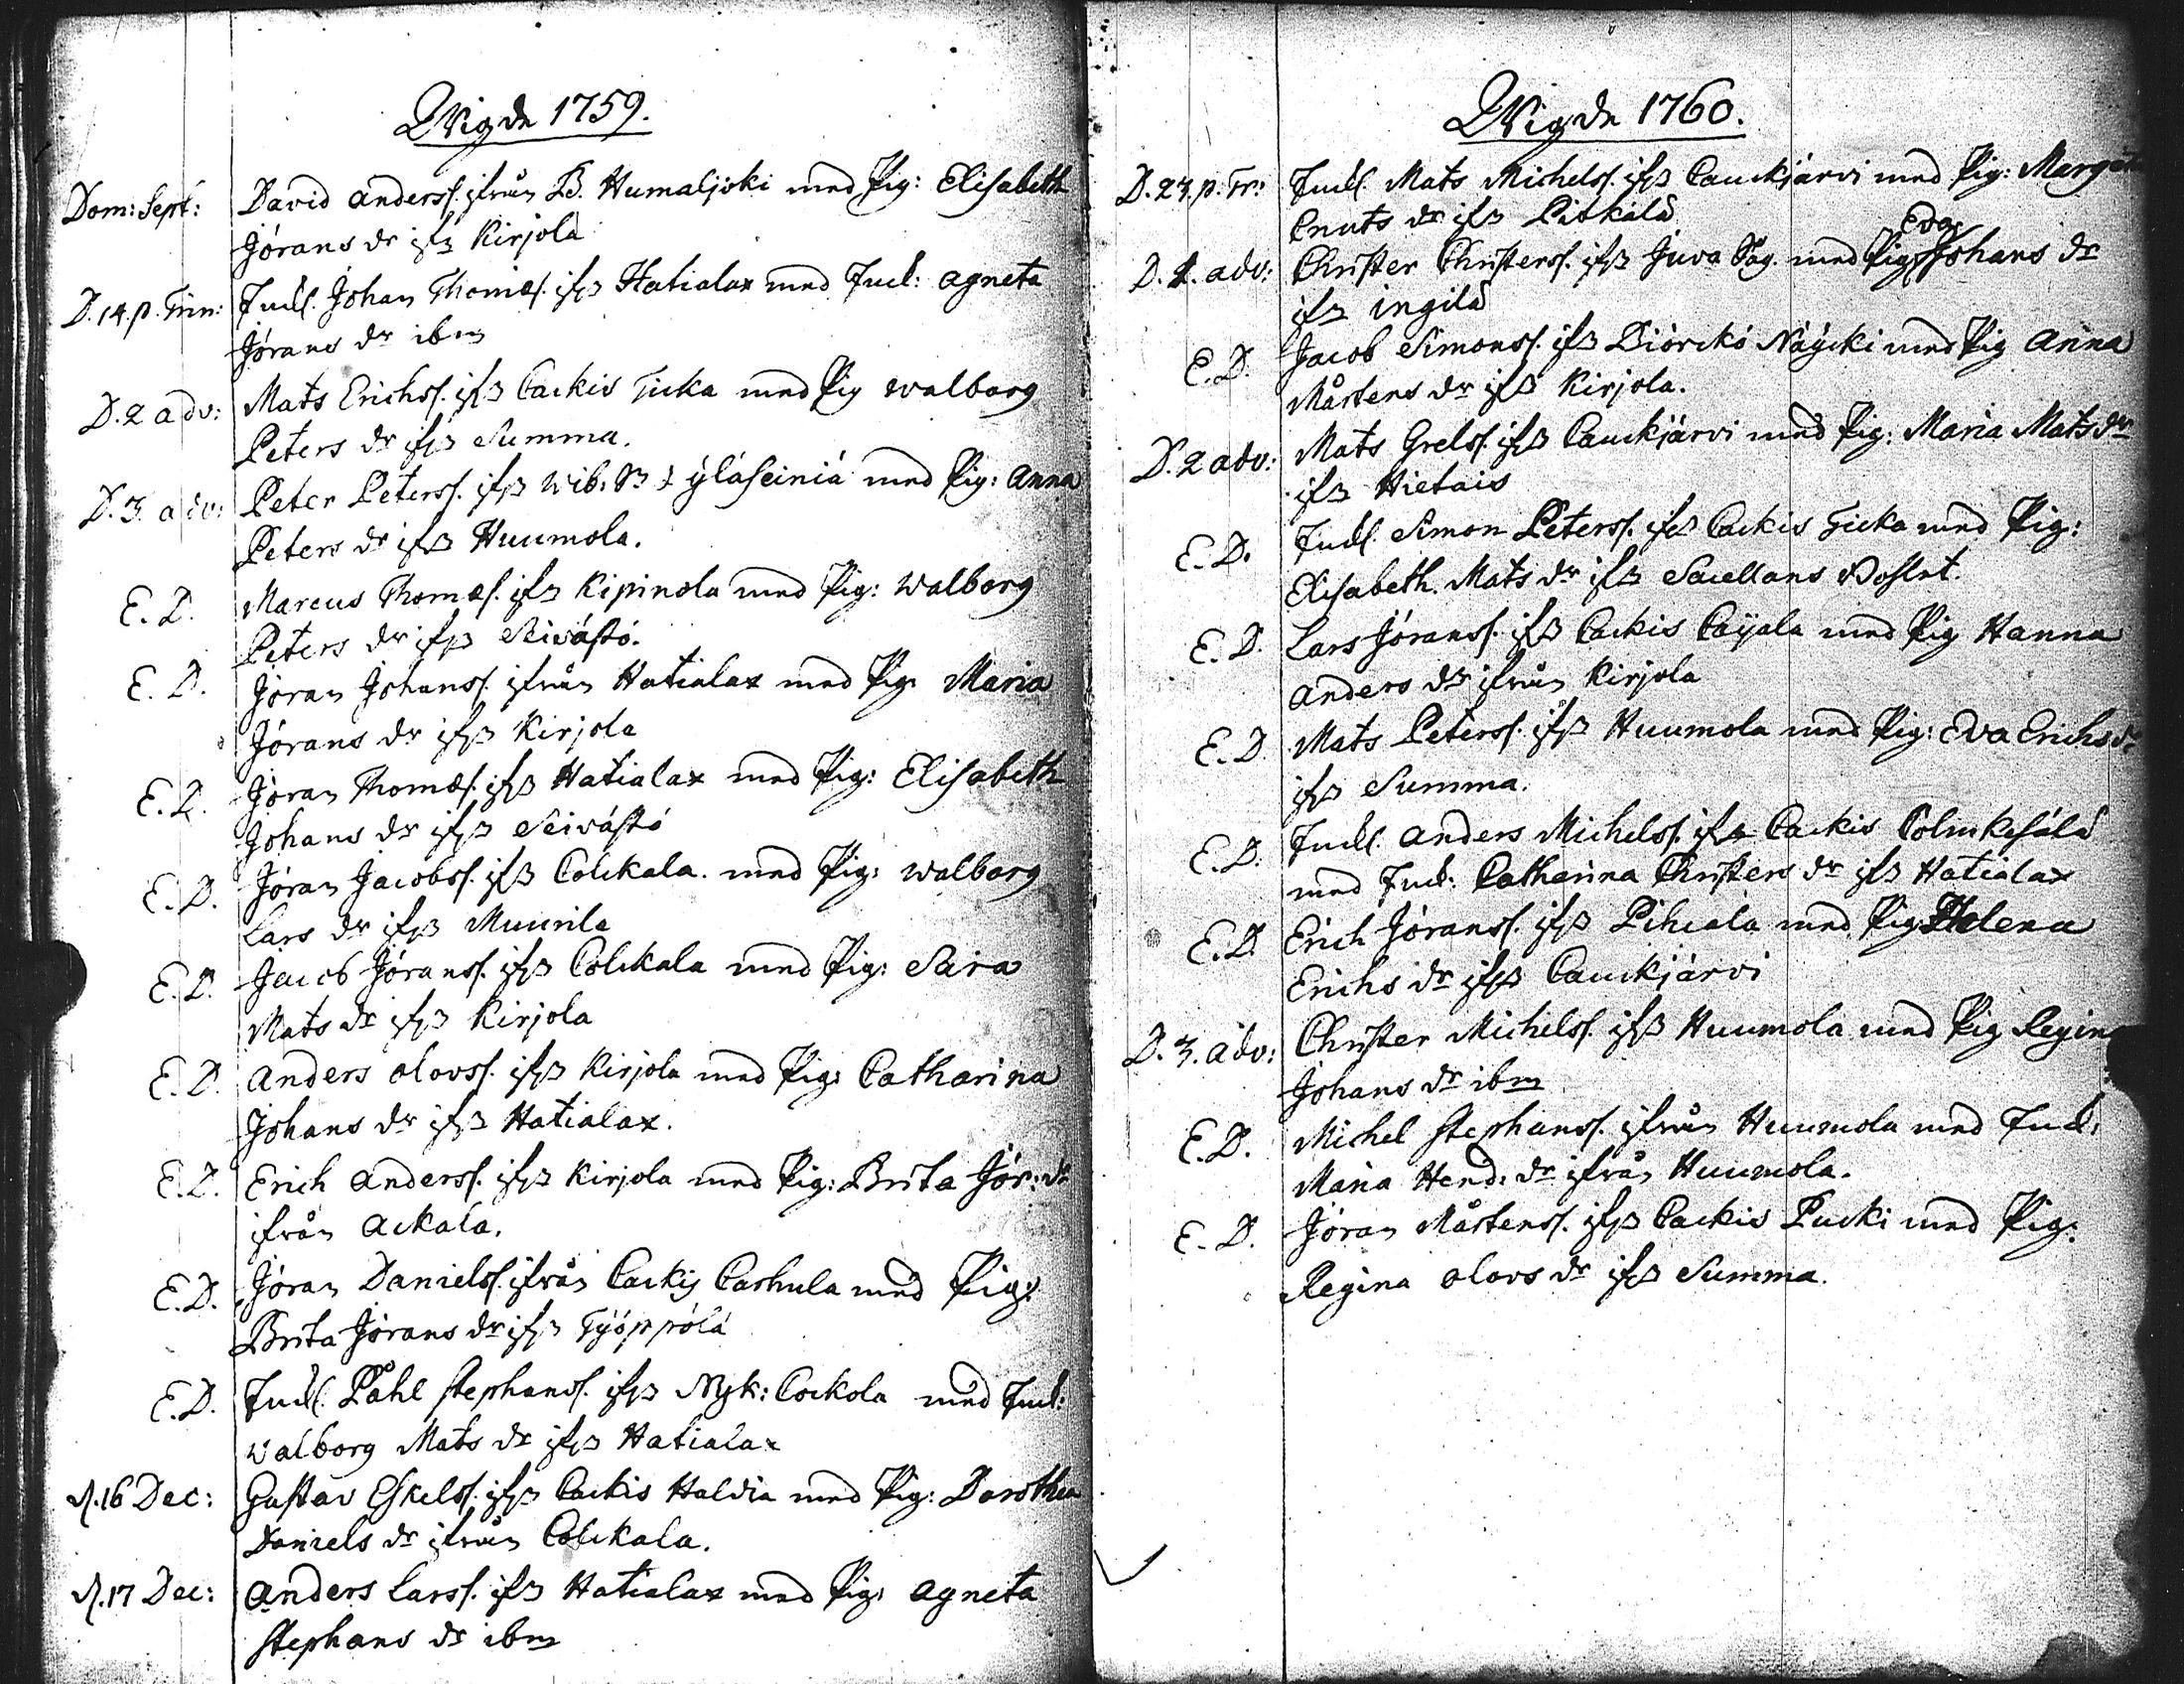 Wigde 1759.
Dom: Sept: David anderss. ifrån B. Humaljoki med Pig: Elisabeth
Jörans dr ifr Kirjola
D. 14. p. Trin: Enckl. Johan Thomæs. ifr Hatialax med Enck: agneta
Jörans dr ibm
D. 2 adv: Mats Erichss. ifr Cackis Ticka med Pig walborg
Peters dr ifr Summa.
D. 3. adv: Peter Peterss. ifr Wib: yläseiniä med Pig: anna
Peters dr ifr Huumola.
E. D. Marcus Thomæs. ifr Kipinola med Pig: walborg
Peters dr ifr Seivästö.
E. D. Jöran Johanss. ifrån Hatialax med Pig: Maria
Jörans dr ifr Kirjola
E. D. Jöran Thomæs. ifr Hatialax med Pig: Elisabeth
Johans dr ifr Seivästö
E. D. Jöran Jacobss. ifr Colckala. med Pig: walborg
Lars dr ifr Muurila
E. D. Jacob Jöranss. ifr Colckala med Pig: Sara
Mats dr ifr Kirjola
E. D. anders olovss. ifr Kirjola med Pig: Catharina
Johans dr ifr Hatialax.
E. D. Erich anderss. ifr Kirjola med Pig: Brita Jör: dr
ifrån ackala.
E. D. Jöran Danielss. ifrån Cackis Carhula med Pig:
Brita Jörans dr ifr Työppölä
E. D. Enckl. Påhl Stephanss. ifr Nyk: Cockola med Enck:
walborg Mats dr ifr Hatialax
d. 16 Dec: Gustav Eskelss. ifr Cackis Haldia med Pig: Dorothea
Daniels dr ifrån Colckala.
d. 17 Dec: anders Larss. ifr Hatialax med Pig: agneta
Stephans dr ibm
Wigde 1760.
D. 23. p. Tr: Enckl. Mats Michelss. ifr Cauckjärvi med Pig:
Cnuts dr ifr Pitkälä
Eva
D. 1. adv: Christer Christerss. ifr Juva med Pig Johans dr
ifr ingilä
E. D. Jacob Simonss. ifr Biörckö Näycki med Pig anna
Mårtens dr ifr Kirjola.
D. 2 adv: Mats Grelss. ifr Cauckjärvi med Pig: Maria Mats dr
ifr Hietais
E. D. Enckl. Simon Peterss. ifr Cackis Ticka med Pig:
Elisabeth. Mats dr ifr
E. D. Lars Jöranss. ifr Cackis Caÿala med Pig Hanna
anders dr ifrån Kirjola
E. D. Mats Peterss. ifr Huumola med Pig: Eva Erichs dr
ifr Summa.
E. D. Enckl. anders Michelss. ifr Cackis Colmkesälä
med Enck: Catharina Christers dr ifr Hatialax
E. D. Erich Jöranss. ifr Pihcala med Pig Helena
Erichs dr ifr Cauckjärvi
D. 3. adv: Christer Michelss. ifr Huumola med Pig Regin
Johans dr ibm
E. D. Michel Stephanss. ifrån Huumola med Enck:
Maria Hend: dr ifrån Huumola.
E. D. Jöran Mårtenss. ifr Cackis Pucki med Pig:
Regina olovs dr ifr Summa.